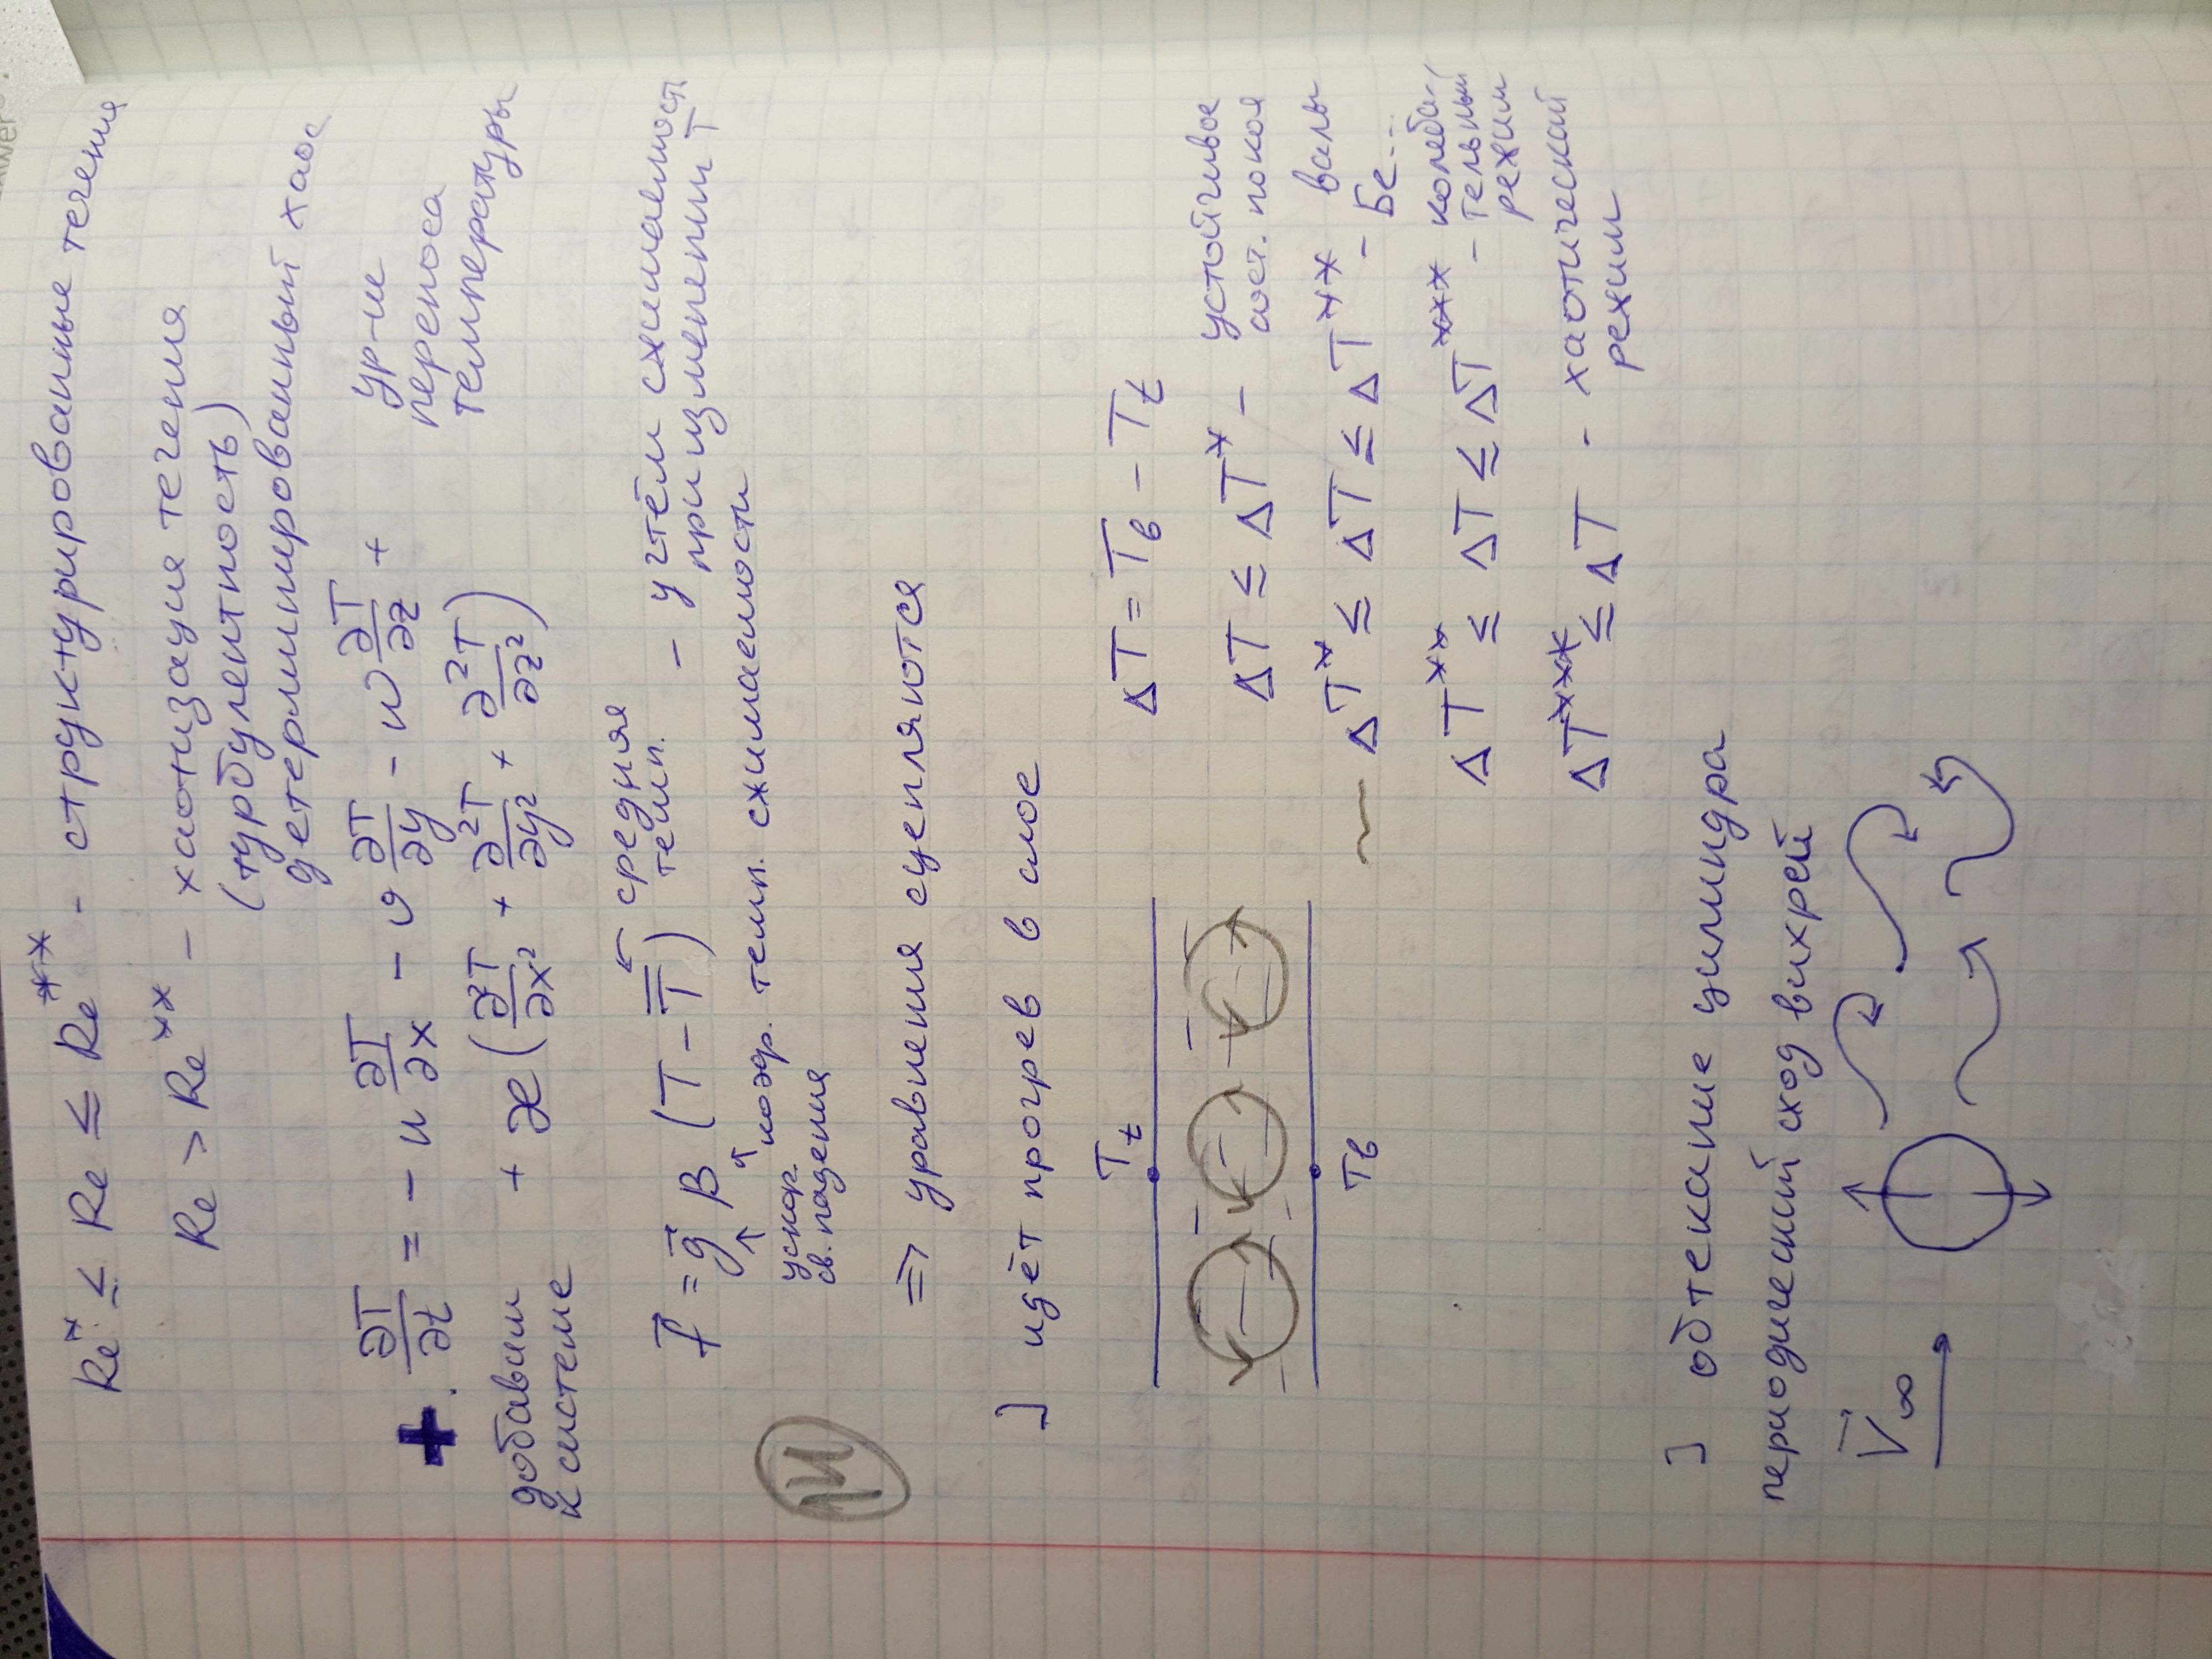 Re* ≤ Re ≤ Re** - структурированные течения
Re > Re** - хаотизация течения
(турбулентность)
детерминированный хаос
+. ∂T/∂t = - u ∂T/∂x - v ∂T/∂y - w ∂T/∂z +
ур-ие
переноса
температуры
добавим
к системе
+ æ (∂²T/∂x² + ∂²T/∂y² + ∂²T/∂z²)
f⃗ = g⃗ β (T - T̿) ← средняя
темп.
- учтём сжимаемость
при изменении T
↑ ускор.
св. падения
↑ коэф. темп. сжимаемости
14
⇒ уравнения сцепляются
] идёт прогрев в слое
T_t
T_b
ΔT = T_b - T_t
ΔT ≤ ΔT* - устойчивое
сост. покоя
~ ΔT* ≤ ΔT ≤ ΔT** - валы
Бе...
ΔT** ≤ ΔT ≤ ΔT*** - колеба-
тельный
режим
ΔT*** ≤ ΔT - хаотический
режим
] обтекание цилиндра
периодический сход вихрей
V⃗∞